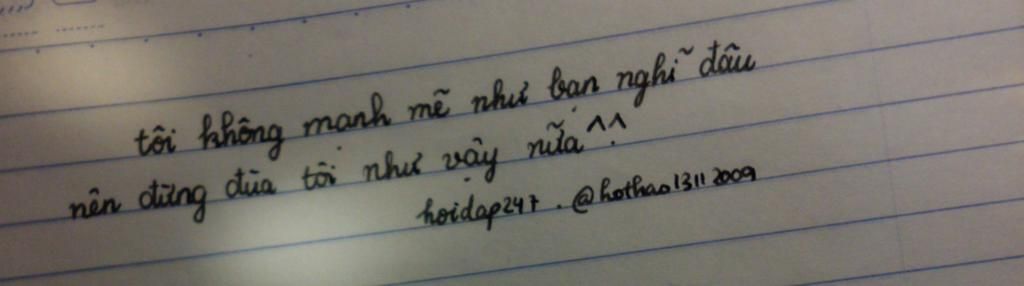 tôi không mạnh mẽ như bạn nghĩ đâu
nên đừng đùa tôi như vậy nữa ^^.
hoidap247 . @hothao13112009